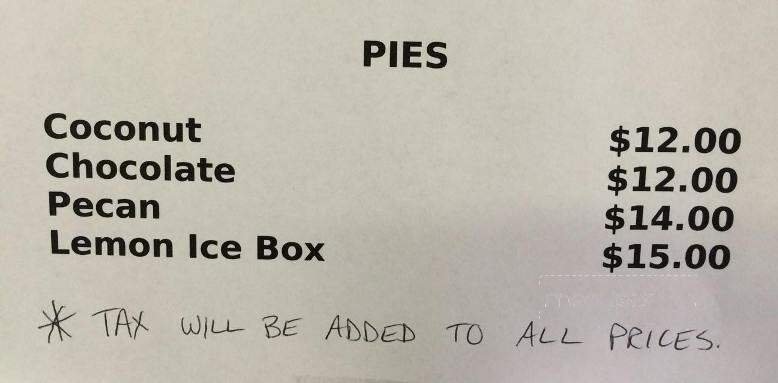 PIES
Coconut $12.00
Chocolate $12.00
Pecan $14.00
Lemon Ice Box $15.00
* TAX WILL BE ADDED TO ALL PRICES.